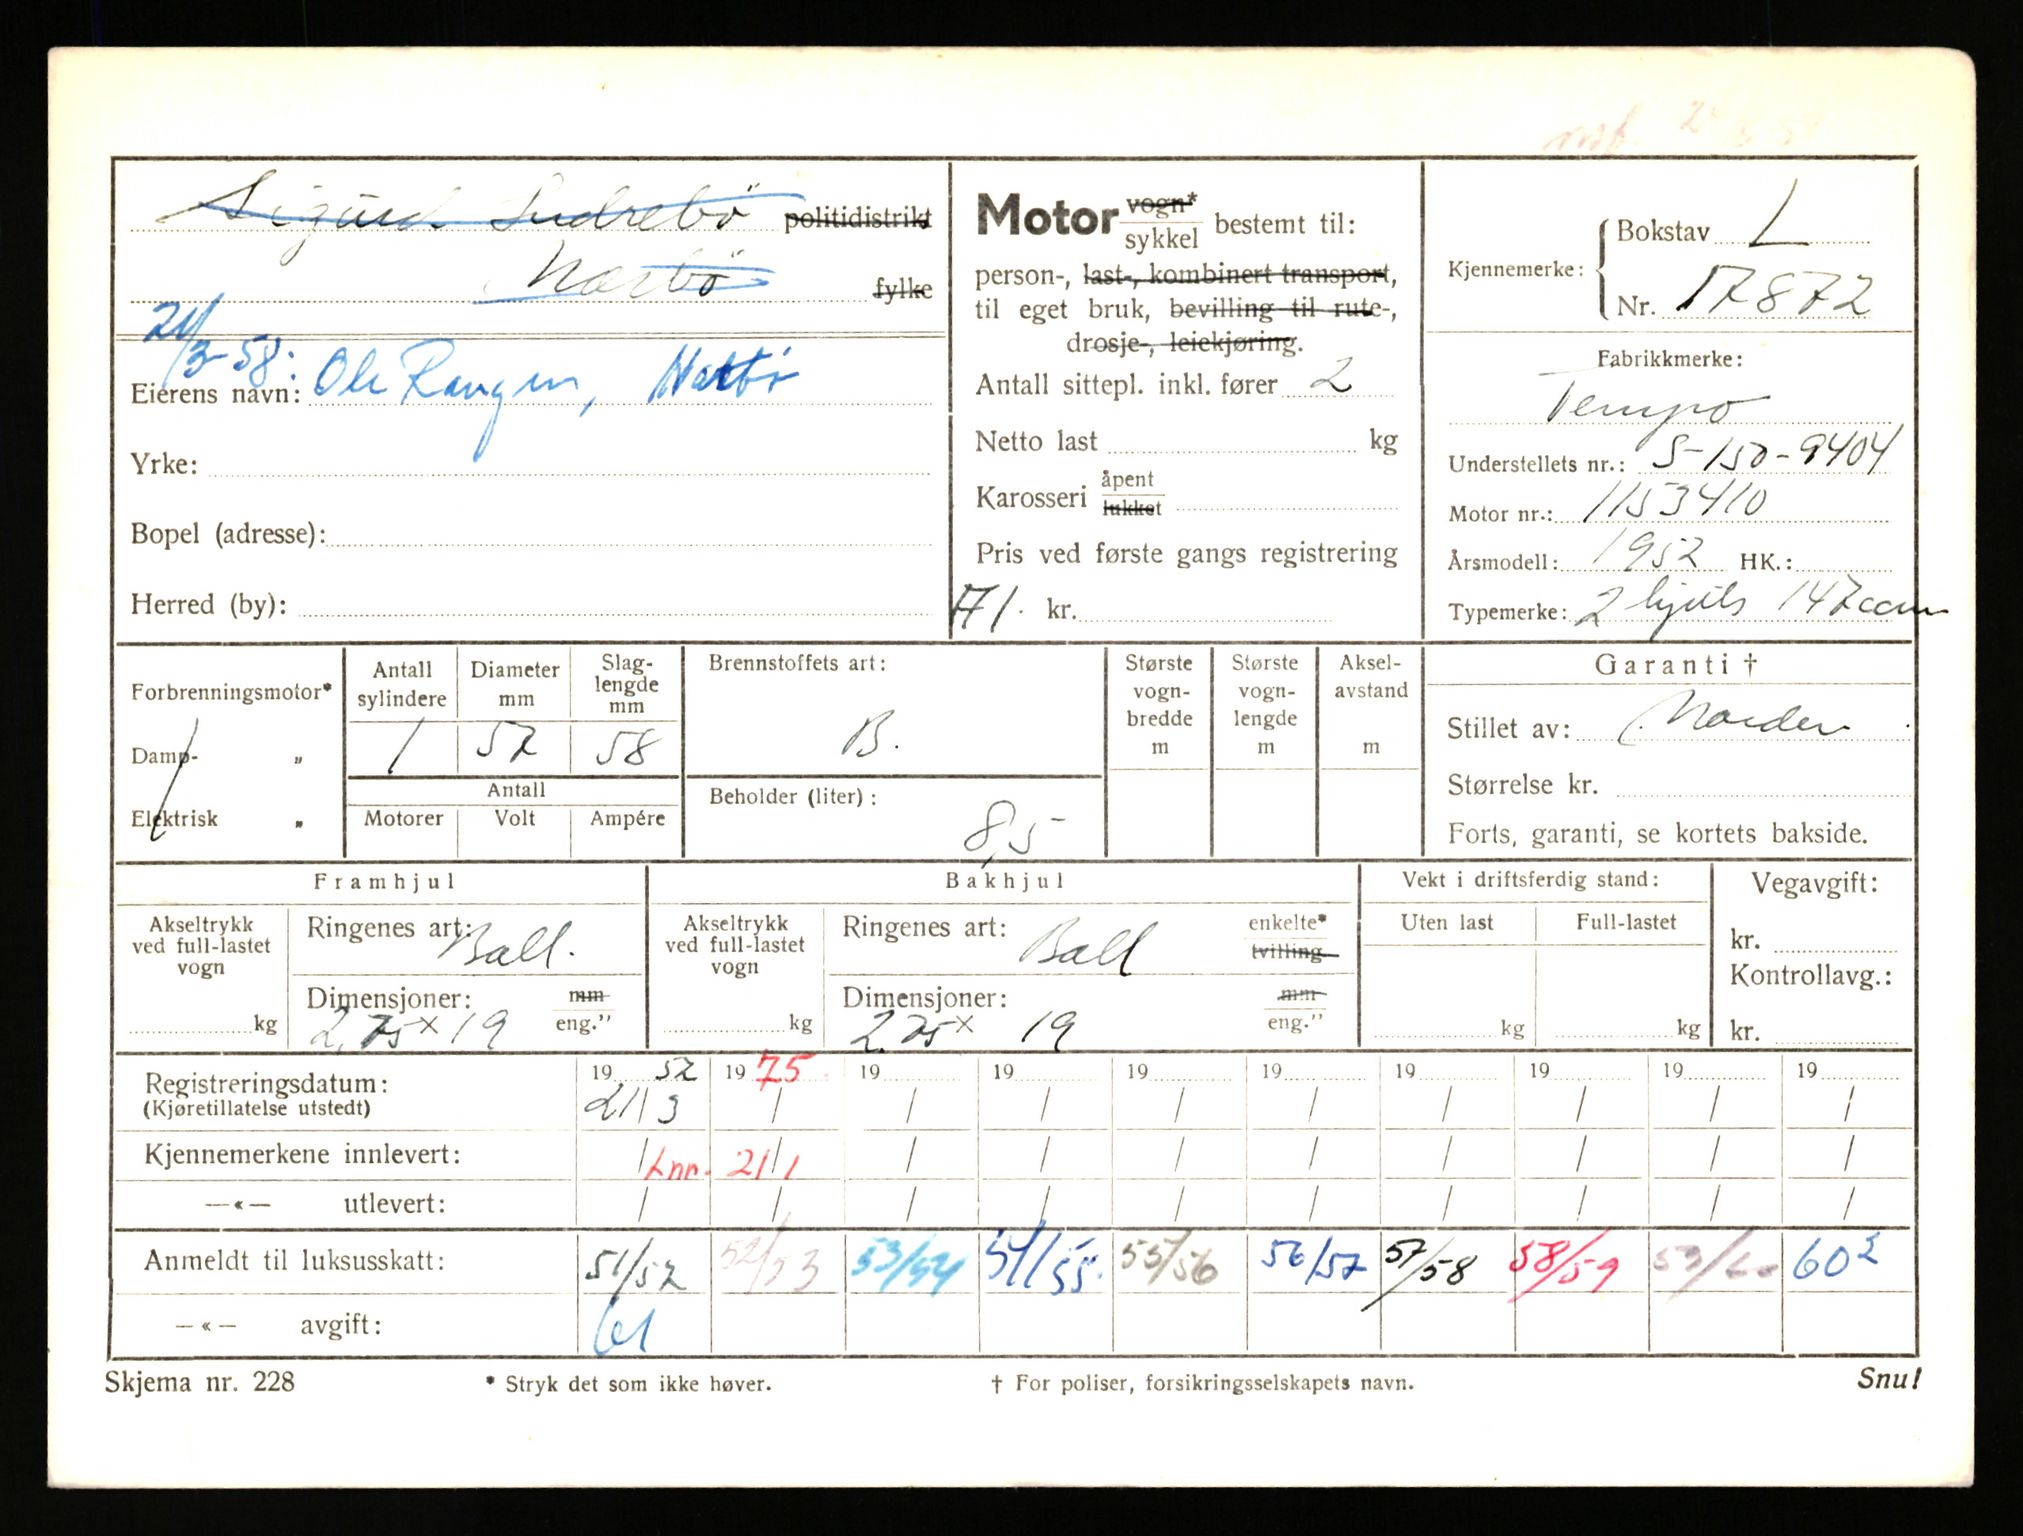 Sigurd Sudrebö politidistrikt
Nærbö fylke
24/3-58:
Eierens navn: Ole Rangen, Nærbö
Yrke:
Bopel (adresse):
Herred (by):
Motor vogn* sykkel bestemt til:
person-, last-, kombinert transport,
til eget bruk, bevilling til rute-,
drosje-, leiekjøring.
Antall sittepl. inkl. fører 2
Netto last kg
Karosseri åpent lukket
Pris ved første gangs registrering
A1. kr.
Kjennemerke: Bokstav L
Nr. 17872
Fabrikkmerke:
Tempo
Understellets nr.: S-150-9404
Motor nr.: 1153410
Årsmodell: 1952 HK.:
Typemerke: 2 hjuls 147ccm
Forbrenningsmotor*
Damp- „
Elektrisk „
Antall sylindere
Diameter mm
Slag-lengde mm
1 57 58
Antall
Motorer Volt Ampére
Brennstoffets art:
B.
Beholder (liter):
8,5
Største vogn-bredde m
Største vogn-lengde m
Aksel-avstand m
Garanti †
Stillet av: Norden
Størrelse kr.
Forts, garanti, se kortets bakside.
Framhjul
Akseltrykk ved full-lastet vogn
kg
Ringenes art: Ball.
Dimensjoner: mm eng.”
2,75 x 19
Bakhjul
Akseltrykk ved full-lastet vogn
kg
Ringenes art: Ball enkelte* tvilling
Dimensjoner: mm eng.”
2,75 x 19
Vekt i driftsferdig stand:
Uten last Full-lastet
kg kg
Vegavgift:
kr.
Kontrollavg.:
kr.
Registreringsdatum: 19 52 19 75 19 19 19 19 19 19 19 19
(Kjøretillatelse utstedt) 21/3 / / / / / / / / /
Kjennemerkene innlevert: / Inn. 21/1 / / / / / / / /
—«— utlevert: / / / / / / / / / /
Anmeldt til luksusskatt: 51/52 52/53 53/54 54/55. 55/56 56/57 57/58 58/59 59/60 60
—«— avgift: 61
Skjema nr. 228 * Stryk det som ikke høver. † For poliser, forsikringsselskapets navn. Snu!